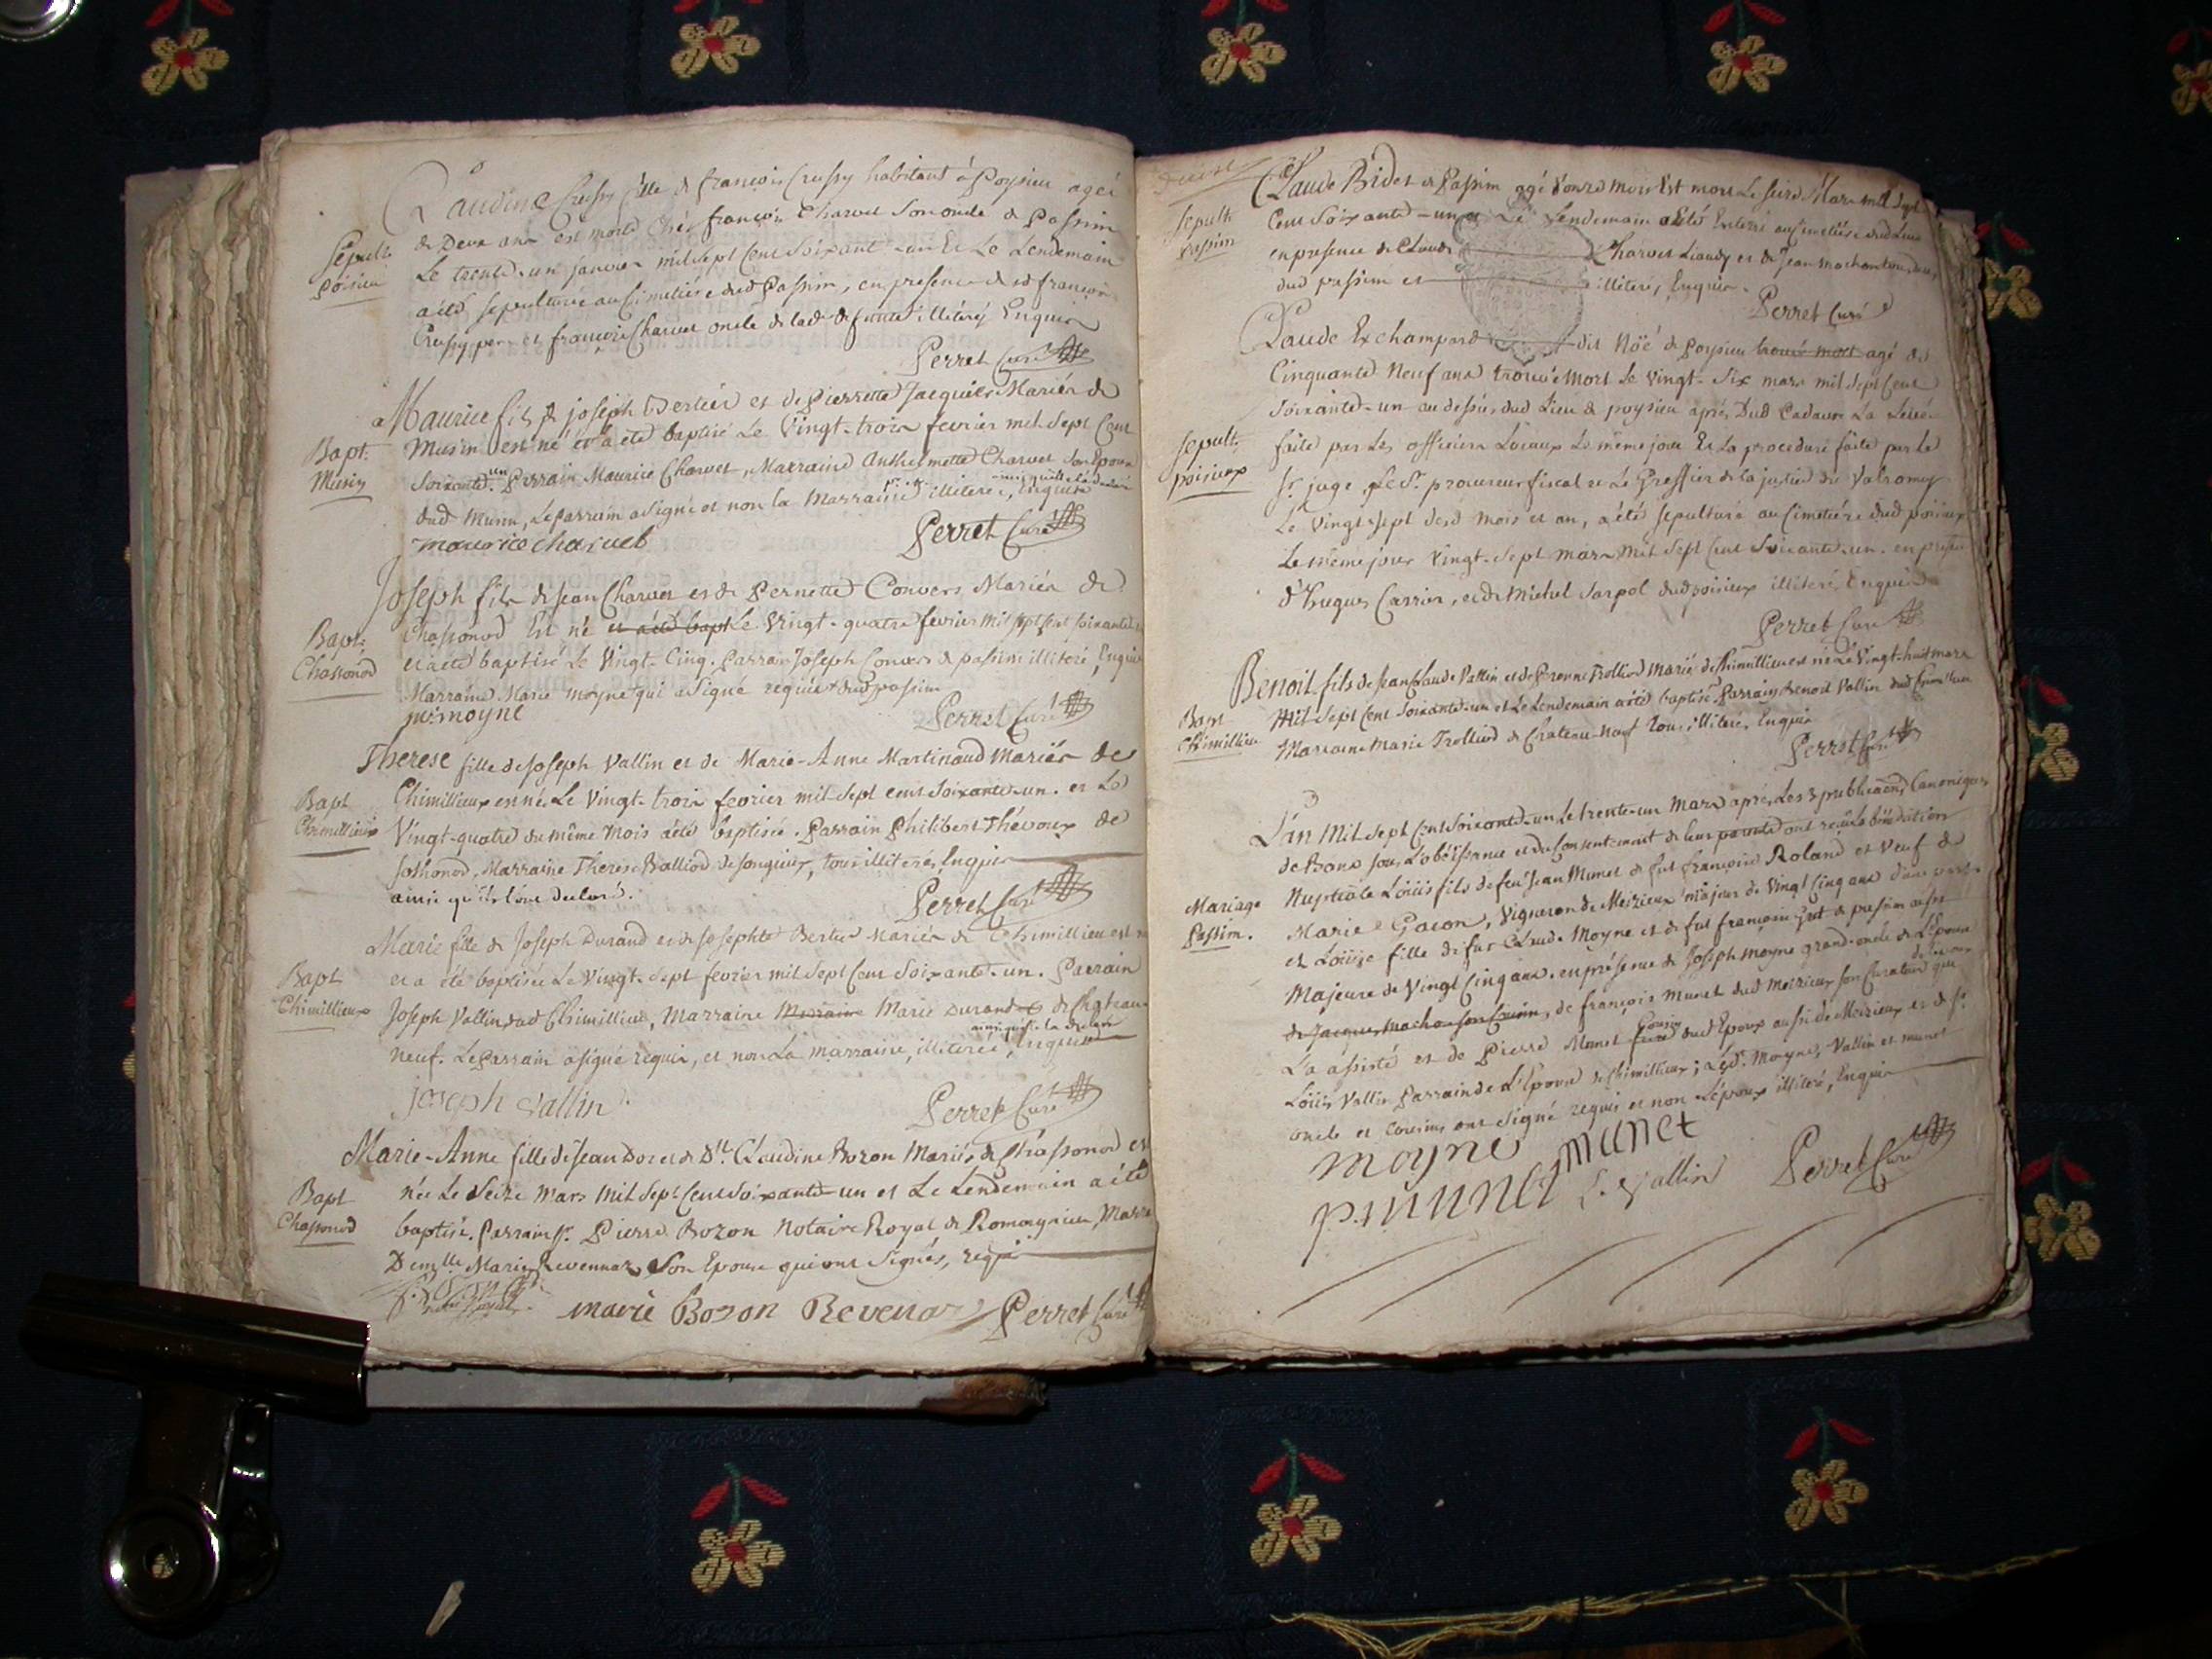 Claudine Crussy fille de françois Crussy habitant à Poysieu agée
de Deux ans est morte chés françois Charvet son oncle de Passim
Sépult: Le trente-un janvier mil sept cent soixant-un Et Le Lendemain
poisieu a été sepulturée au simetiére dud Passim, en presence dud françois
Crussy pere et françois Charvet oncle de lad defunte illiterés Enquis
Perret Curé
Maurice fils de joseph Bertier et de Pierrette Jacquier Mariés de
Bapt. Musin est né et a eté baptisé Le Vingt-trois fevrier mil sept Cent
Musin soixante-un Parrain Maurice Charvet, Marraine Anthelmette Charvet son Epouse
dud Musin, Le parrain a signé et non la Marraine illiterée, Enquise
maurice charveb Perret Curé
Joseph fils de jean Charvet et de Pernette Convers Mariés de
Bapt: Chassonod Est né et a été bapt Le Vingt-quatre fevrier mil sept cent soixante-un
Chassonod et a eté baptisé Le Vingt-Cinq. Parrain Joseph Convers de passim illiteré, Enquis
Marraine Marie moyne qui a Signé requise dud passim
moyne Perret Curé
Therese fille de Joseph Vallin et de Marie-Anne Martinaud Mariés de
Bapt Chimillieux est née Le Vingt-trois fevrier mil-sept cent soixante-un. et Le
Chimillieux Vingt-quatre du même Mois a été baptisée. Parrain Philibert Thévoux de
Jothonod, Marraine Therese Balliod de songieux, tous illiterés, Enquis
ainsi qu'ils l'ont declaré. Perret Curé
Marie fille de Joseph Durand et de Josephte Bertier Mariés de Chimillieu est née
Bapt et a été baptisée Le Vingt-Sept fevrier mil Sept Cent Soixante-un. Parrain
Chimillieux Joseph Vallin dud Chimillieu, Marraine Marraine Marie Durand de Chateau-
ainsi qu'elle l'a declaré
neuf. Le Parrain a signé requis, et non La marraine, illiterée, Enquise
joseph vallin Perret Curé
Marie-Anne fille de Jean Doret de Dlle Claudine Bozon Mariés de Chassonod est
Bapt née Le Seize Mars Mil Sept Cent Soixante-un et Le Lendemain a été
Chassonod baptisé. Parrain Sr. Pierre Bozon Notaire Royal de Romagnieu, Marrne
Demlle Marie Revennaz Son Epouse qui ont Signés, requis
marie Bozon Revenaz Perret Curé
Claude Bidet de Passim agé d'onze mois Est mort Le seize Mars mil sept
Sepult: Cent Soixante-un et Le Lendemain a Eté Enterré au simetiére dud Lieu
Passim en presence de Claude Charvet Liaudy et de Jean machon tous deux
dud passim et illiterés, Enquis.
Perret Curé
Claude Exchampard dit Nöé de Poysieu trouvé mort agé de
Cinquante Neuf ans trouvé Mort Le Vingt-Six mars mil Sept Cent
Soixante-un au dessus dud Lieu de poysieu aprés Dud Cadavre La Levée
Sepult: faite par Les officiers Locaux Le même jour Et La procedure faite par le
poisieux Sr. juge, Le Sr. procureur fiscal et Le Greffier de la justice du Valromey
Le Vingt-sept desd Mois et an, a été sepulturé au Cimetiére dud poisieux
Le même jour Vingt-Sept mars mil Sept Cent Soixante-un. en presence
d'Hugues Carrier, et de Michel Sarpol dud poisieux illiterés, Enquis
Perret Curé
Benoit fils de Jean Claude Vallin et de Peronne Trolliod Mariés de Chimillieu est né Le Vingt-huit mars
Bapt Mil-Sept Cent Soixante-un et Le Lendemain a été baptisé Parrain Benoit Vallin dud Chimillieu
Chimillieu Marraine Marie Trolliod de Chateau-Neuf tous illiterés, Enquis
Perret Curé
L'an Mil Sept Cent Soixante-un Le trente-un Mars aprés Les 3 publicaôns Canoniques,
de Bons sous L'obéissance et du Consentement de leurs parents ont reçu la bénédiction
Nuptiale Loüis fils de feu Jean Munet de fut françoise Roland et veuf de
Mariage Marie Gacon, Vigneron de Meizieux majeur de Vingt Cinq ans d'une part.
Passim. et Loüise fille de fut Claude Moyne et de fut françoise Grat de passim aussi
Majeure de Vingt Cinq ans, en présence de Joseph moyne grand-oncle de L'épouse
de Jacques Machon son Cousin, de françois Munet dud Meizieux son Curateur qui
L'a assisté et de Pierre Munet Cousin dud Epoux aussi de Meizieux et de Sr.
Loüis Vallin Parrain de L'Epouse de Chimillieux; Lesd. Moyne, Vallin et munet
oncle et Cousins ont Signé requis et non L'époux illiteré, Enquis
moyne munet
p. munet L. Vallin Perret Curé